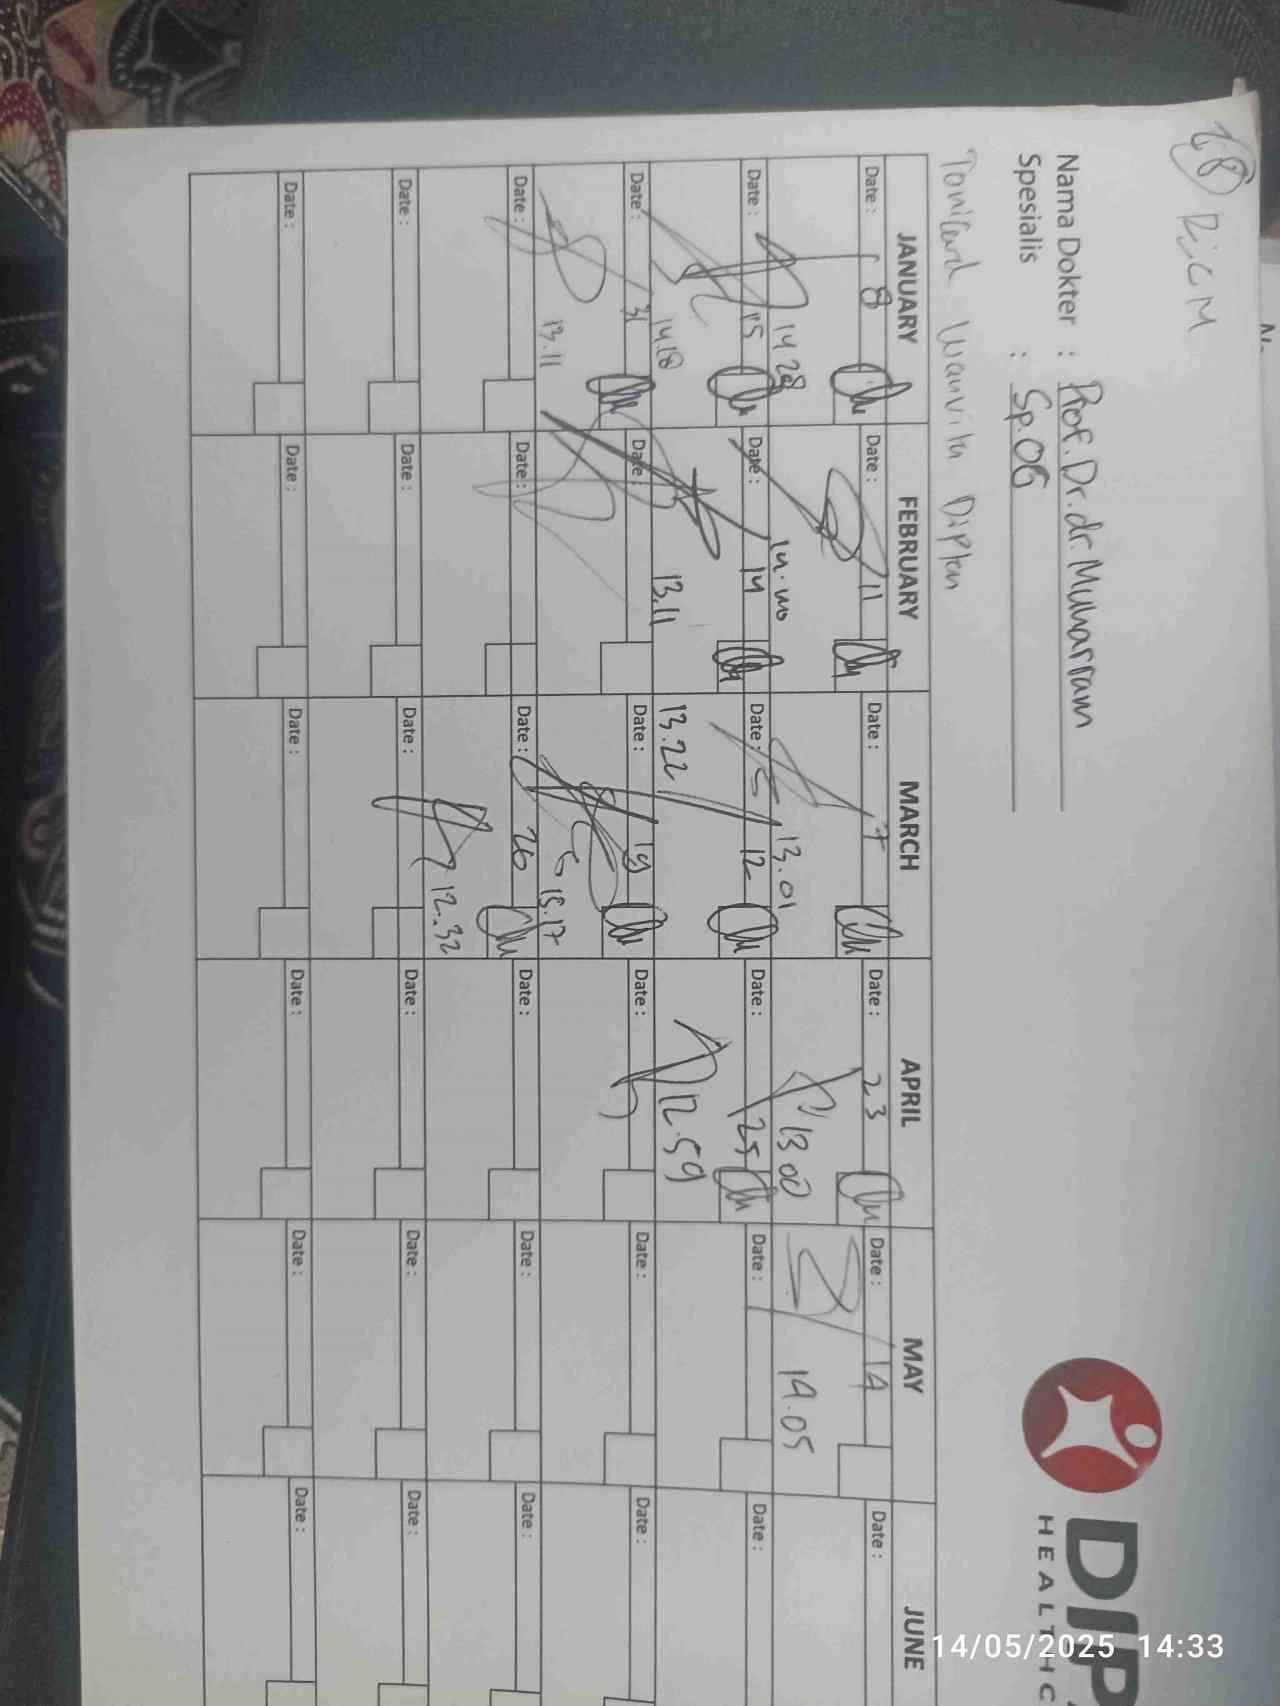 RSCM
Nama Dokter : Prof. Dr. dr. Muharram
Spesialis : Sp.OG
DIP
HEALTHC
JANUARY FEBRUARY MARCH APRIL MAY JUNE
Date : 8 Date : 11 Date : 7 Date : 23 Date : 14 Date :
14 28 13.01 13 00 14.05
Date : 15 Date : 14 Date : 12 Date : 25 Date : Date :
14.18 13.11 13.22 12.59
Date : 31 Date : Date : 19 Date : Date : Date :
13.11 15.17
Date : Date : Date : 26 Date : Date : Date :
12.32
Date : Date : Date : Date : Date : Date :
Date : Date : Date : Date : Date : Date :
14/05/2025 14:33